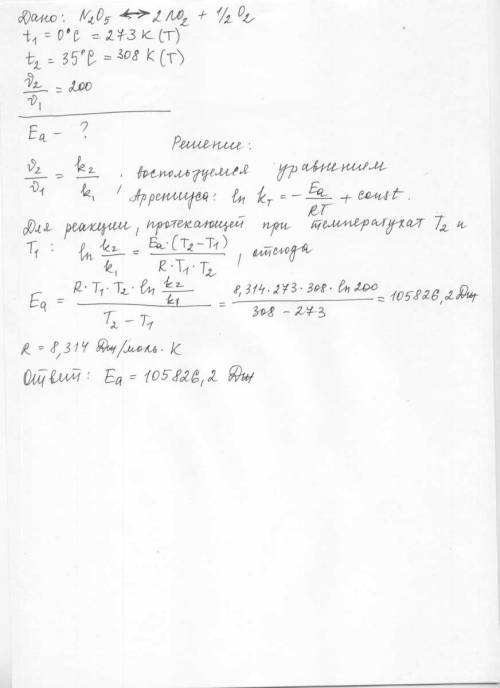 Дано: N₂O₅ ⟷ 2NO₂ + 1/2 O₂
t₁ = 0°C = 273 K (T)
t₂ = 35°C = 308 K (T)
ϑ₂/ϑ₁ = 200
Ea - ?
Решение:
ϑ₂/ϑ₁ = k₂/k₁, воспользуемся уравнением
Аррениуса: ln k_T = - Ea/RT + const.
Для реакции, протекающей при температурах T₂ и
T₁: ln k₂/k₁ = Ea·(T₂-T₁)/R·T₁·T₂, отсюда
Ea = R·T₁·T₂·ln k₂/k₁ / T₂-T₁ = 8,314·273·308·ln 200 / 308-273 = 105826,2 Дж
R = 8,314 Дж/моль·K
Ответ: Ea = 105826,2 Дж